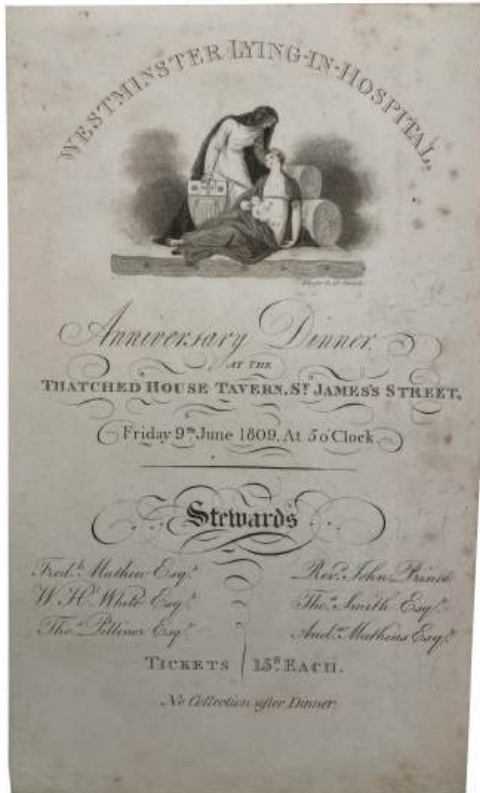 WESTMINSTER LYING-IN-HOSPITAL,
Anniversary Dinner
AT THE
THATCHED HOUSE TAVERN, St. JAMES'S STREET,
Friday 9th June 1809, At 5 o'Clock
Stewards
Fredk. Mathew Esqr. Revd. John Prince
W. H. White Esqr. Thos. Smith Esqr.
Thos. Pittinor Esqr. Andw. Mathias Esqr.
TICKETS 15s. EACH.
No Collection after Dinner.